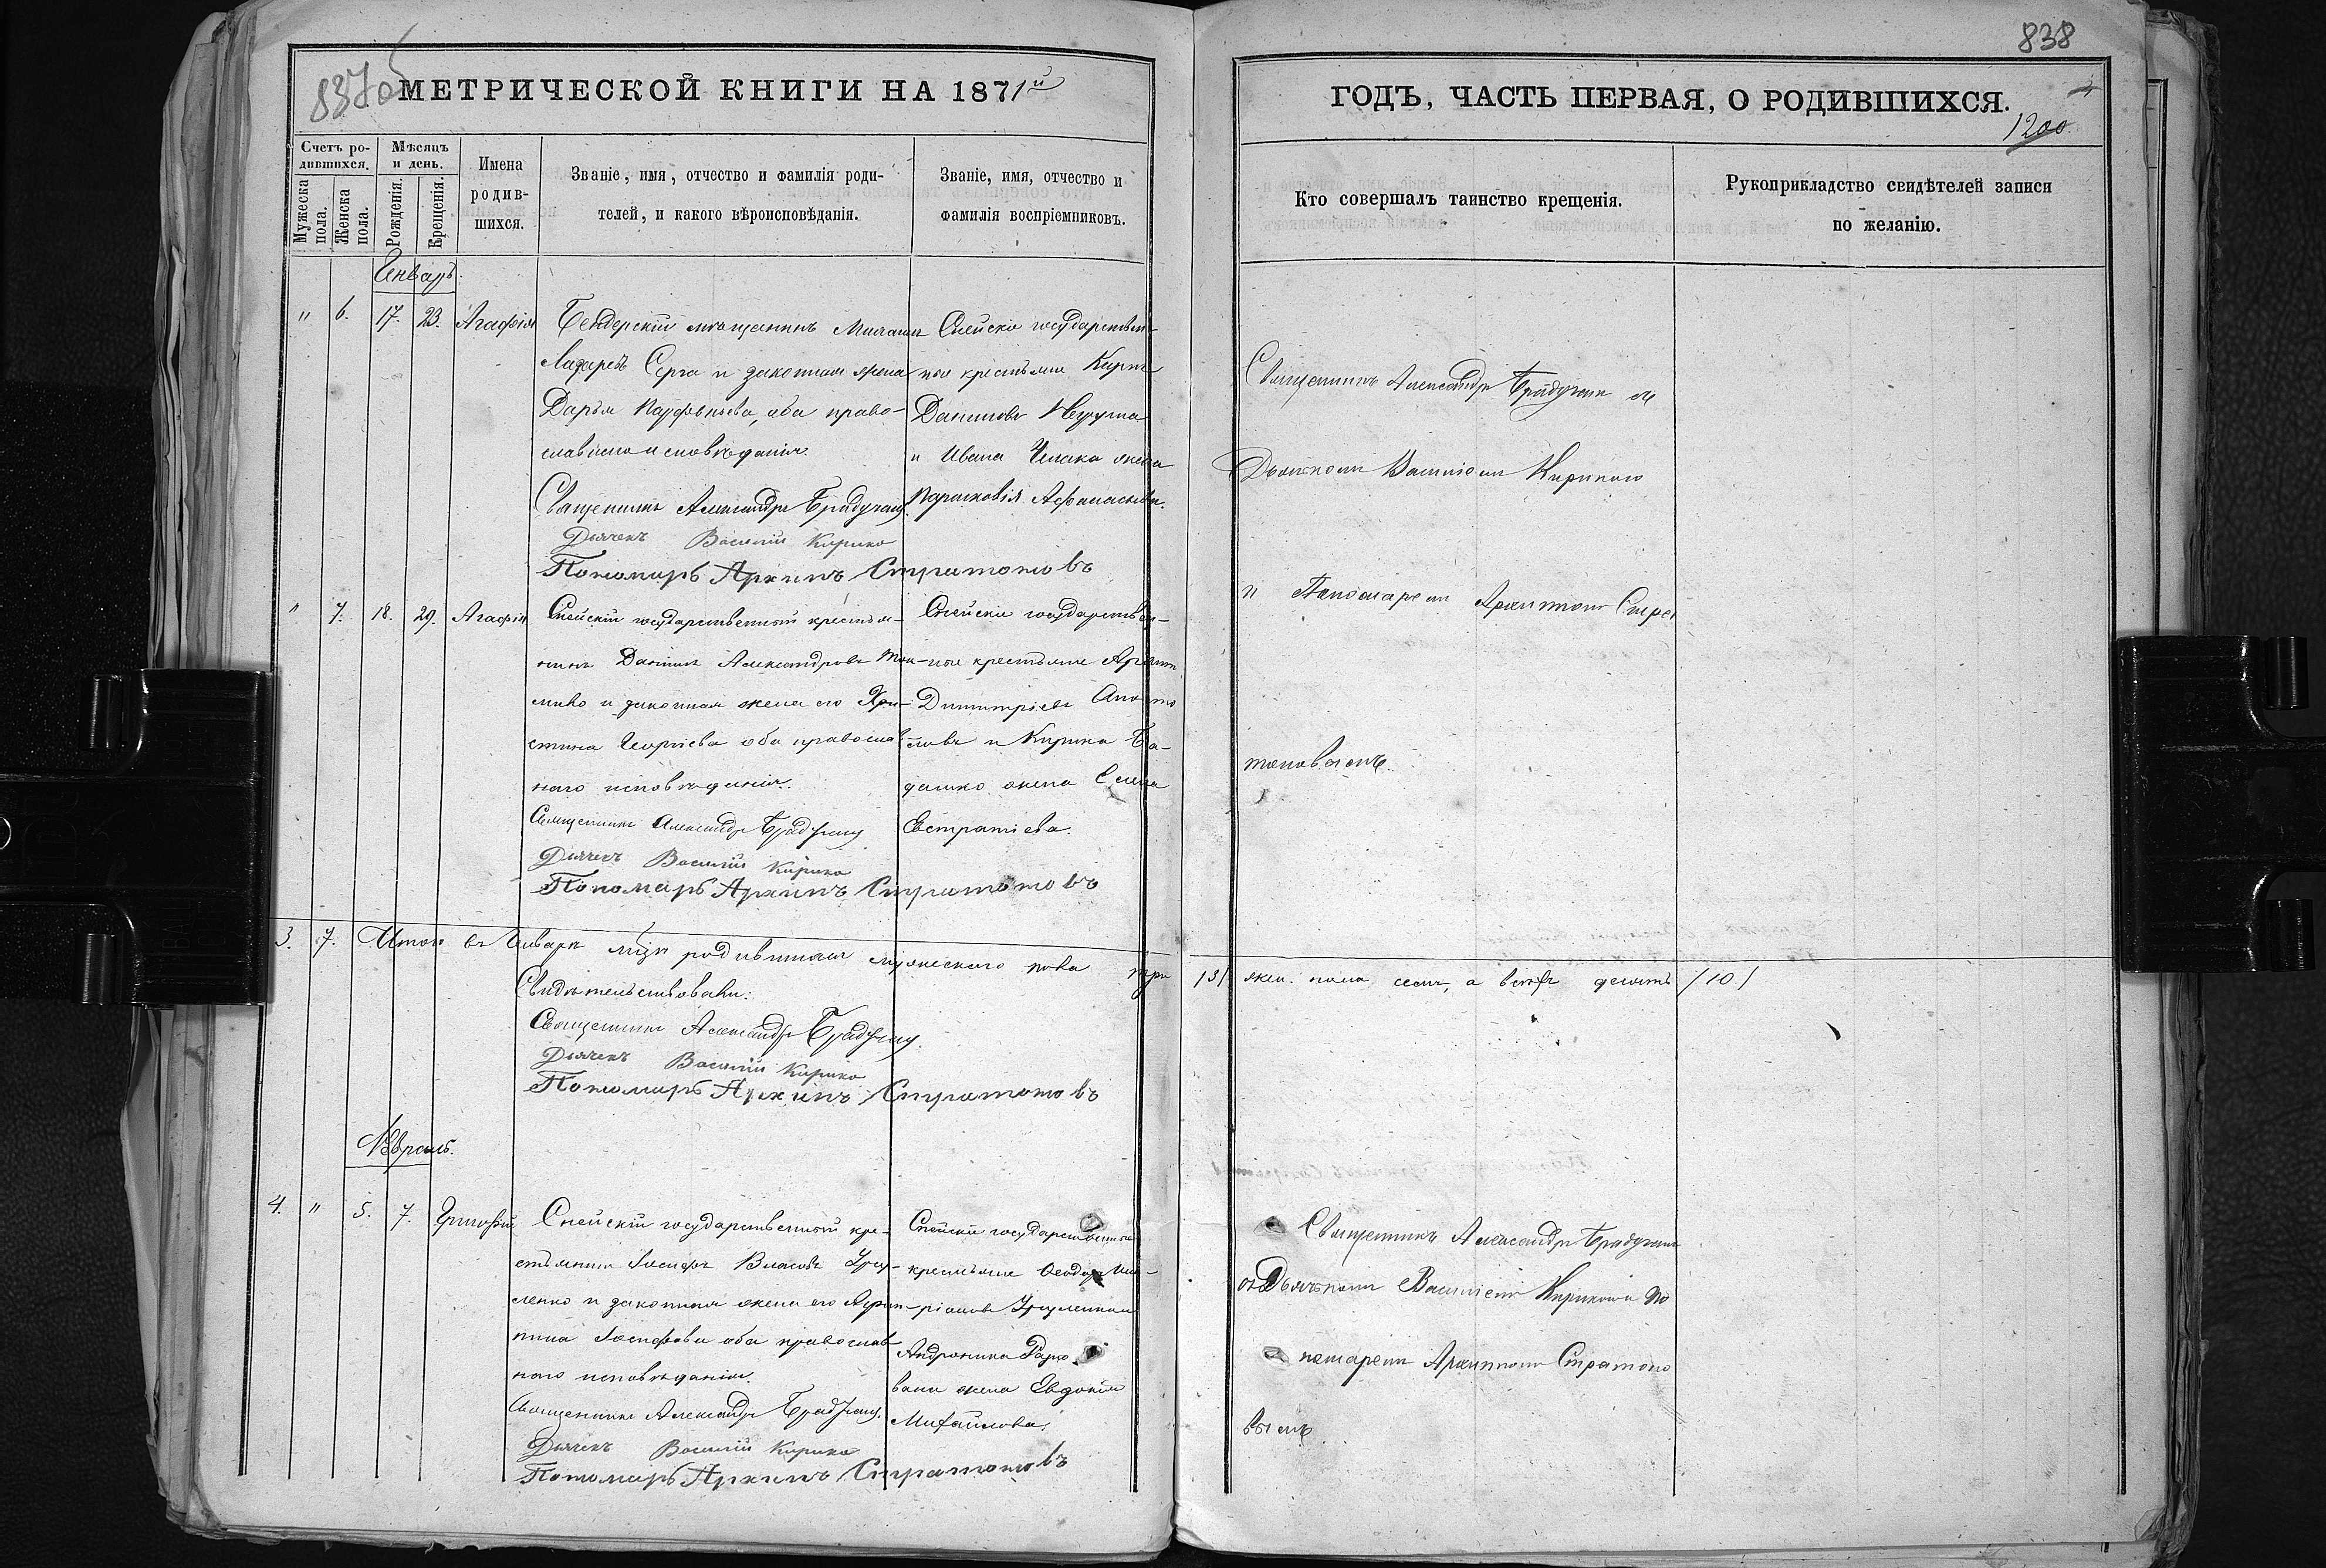 837об
МЕТРИЧЕСКОЙ КНИГИ НА 1871й
Счетъ ро-
дившихся.
Мужеска
пола.
Женска
пола.
Мѣсяцъ
и день.
Рожденія.
Крещенія.
Имена
родив-
шихся.
Званіе, имя, отчество и фамилія роди-
телей, и какого вѣроисповѣданія.
Званіе, имя, отчество и
фамилія воспріемниковъ.
Январь.
" 6. 17. 23. Агафія
Бендерскій мѣщанинъ Михаилъ
Лазаревъ Серга и законная жена
Дарья Парфеньева, оба право-
славнаго исповѣданія.
Священникъ Александръ Брадучанъ.
Дьячекъ Василій Кирико
Пономарь Архипъ Стратоновъ
Спейскіе государствен-
ные крестьяне Кирилъ
Даниловъ
и Ивана жена
Парасковія Афанасьева.
" 7. 18. 29. Агафія
Спейскій государственный крестья-
нинъ Даніилъ Александровъ
и законная жена его Хри-
стина Георгіева оба православ-
наго исповѣданія.
Священникъ Александръ Брадучанъ
Дьячекъ Василій Кирико
Пономарь Архипъ Стратоновъ
Спейскіе государствен-
ные крестьяне
Димитріевъ Апосто
ловъ и Кирика Ба-
дашко жена Елена
Евстратіева.
3. 7. Итого въ Январѣ мцѣ родившихся мужескаго пола три
Свидѣтельствовали:
Священникъ Александръ Брадучанъ.
Дьячекъ Василій Кирико
Пономарь Архипъ Стратоновъ
Февраль.
4. " 5. 7. Григорій
Спейскій государственный кре-
стьянинъ Іосифъ Власовъ Урсу-
ленко и законная жена его Ири-
нина Іосифова оба православ-
наго исповѣданія.
Священникъ Александръ Брадучанъ.
Дьячекъ Василій Кирико
Пономарь Архипъ Стратоновъ
Спейскіе государственные
крестьяне Ѳеодоръ Ила-
ріоновъ Урсуленко и
Андроника
жена Евдокія
Михайлова.
838
ГОДЪ, ЧАСТЬ ПЕРВАЯ, О РОДИВШИХСЯ.
1200.
Кто совершалъ таинство крещенія.
Рукоприкладство свидѣтелей записи
по желанію.
Священникъ Александръ Брадучанъ съ
Дьячкомъ Василіемъ Кирикою
и Пономаремъ Архипомъ Страт
тоновымъ.
/3/ жен. пола семь, а всѣхъ десять /10/
Священникъ Александръ Брадучанъ
съ Дьячкомъ Василіемъ Кирикою и По
номаремъ Архипомъ Стратоно
вымъ